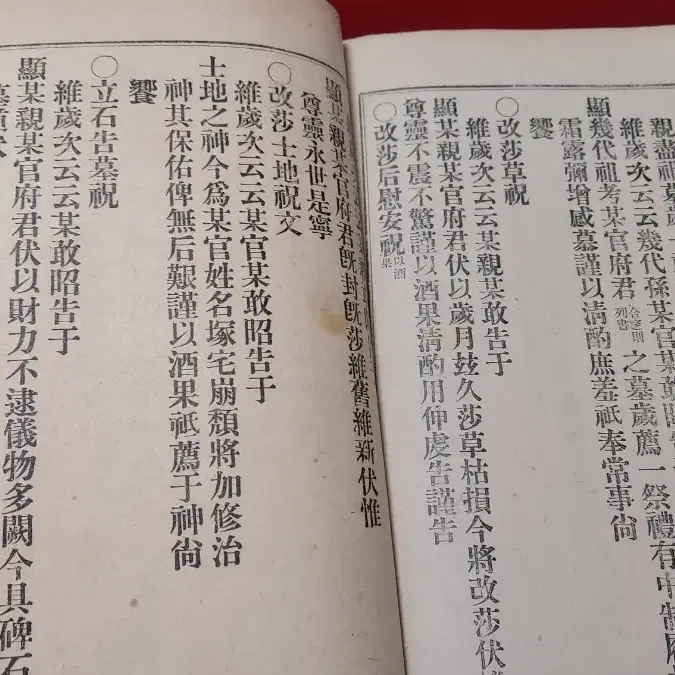 親盡祖墓歲一
維歲次云云幾代孫某官某敢昭告
顯幾代祖考某官府君合窆則列書之墓歲薦一祭禮有中制履
霜露彌增感慕謹以淸酌庶羞祇奉常事尙
饗
○改莎草祝
維歲次云云某親某敢昭告于
顯某親某官府君伏以歲月玆久莎草枯損今將改莎伏惟
尊靈不震不驚謹以酒果淸酌用伸虔告謹告
○改莎后慰安祝以酒果
顯某親某官府君旣封旣莎維舊維新伏惟
尊靈永世是寧
○改莎土地祝文
維歲次云云某官某敢昭告于
土地之神今爲某官姓名塚宅崩頹將加修治
神其保佑俾無后艱謹以酒果祇薦于神尙
饗
○立石告墓祝
維歲次云云某敢昭告于
顯某親某官府君伏以財力不逮儀物多闕今具碑石